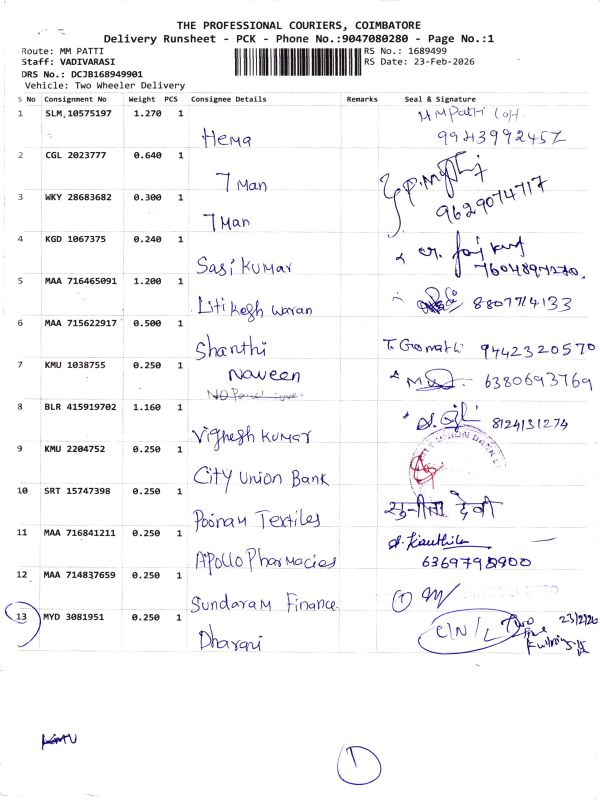 THE PROFESSIONAL COURIERS, COIMBATORE
Delivery Runsheet - PCK - Phone No.:9047080280 - Page No.:1
Route: MM PATTI
RS No.: 1689499
Staff: VADIVARASI
RS Date: 23-Feb-2026
DRS No.: DCJB168949901
Vehicle: Two Wheeler Delivery
S No Consignment No Weight PCS Consignee Details Remarks Seal & Signature
1 SLM 10575197 1.270 1 Hema MMPatti 9943992457
2 CGL 2023777 0.640 1 7 Man
3 WKY 28683682 0.300 1 7 Man 9629074717
4 KGD 1067375 0.240 1 Sasi Kumar 7604897270.
5 MAA 716465091 1.200 1 Litikesh waran 8807714133
6 MAA 715622917 0.500 1 Shanthi T. Gomathi 9442320570
7 KMU 1038755 0.250 1 Naveen 6380693769
NO Parcel cover
8 BLR 415919702 1.160 1 Vighesh Kumar 8124131274
9 KMU 2204752 0.250 1 City Union Bank UNION BANK
10 SRT 15747398 0.250 1 Poonam Textiles सुनीता देवी
11 MAA 716841211 0.250 1 Apollo Pharmacies 6369795900
12 MAA 714837659 0.250 1 Sundaram Finance. 1
13 MYD 3081951 0.250 1 Dharani C/N/L Two 23/2/26
KMU
1